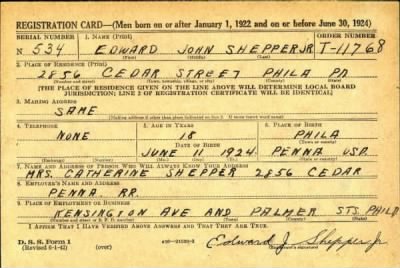 REGISTRATION CARD—(Men born on or after January 1, 1922 and on or before June 30, 1924)
SERIAL NUMBER 1. NAME (Print) ORDER NUMBER
N 534 EDWARD JOHN SHEPPER JR. T-11768
(First) (Middle) (Last)
2. PLACE OF RESIDENCE (Print)
2856 CEDAR STREET PHILA PA
(Number and street) (Town, township, village, or city) (County) (State)
[THE PLACE OF RESIDENCE GIVEN ON THE LINE ABOVE WILL DETERMINE LOCAL BOARD
JURISDICTION; LINE 2 OF REGISTRATION CERTIFICATE WILL BE IDENTICAL]
3. MAILING ADDRESS
SAME
[Mailing address if other than place indicated on line 2. If same insert word same]
4. TELEPHONE 5. AGE IN YEARS 6. PLACE OF BIRTH
NONE 18 PHILA
DATE OF BIRTH (Town or county)
JUNE 11 1924 PENNA USA.
(Exchange) (Number) (Mo.) (Day) (Yr.) (State or country)
7. NAME AND ADDRESS OF PERSON WHO WILL ALWAYS KNOW YOUR ADDRESS
MRS. CATHERINE SHEPPER 2856 CEDAR
8. EMPLOYER'S NAME AND ADDRESS
PENNA. RR.
9. PLACE OF EMPLOYMENT OR BUSINESS
KENSINGTON AVE AND PALMER STS. PHILA
(Number and street or R. F. D. number) (Town) (County) (State)
I AFFIRM THAT I HAVE VERIFIED ABOVE ANSWERS AND THAT THEY ARE TRUE.
D. S. S. Form 1
(Revised 6-1-42) (over) Edward J. Shepper Jr
(Registrant's signature)